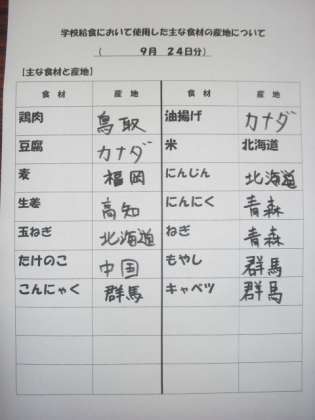 学校給食において使用した主な食材の産地について
( 9月 24日分)
【主な食材と産地】
食材 産地 食材 産地
鶏肉 鳥取 油揚げ カナダ
豆腐 カナダ 米 北海道
麦 福岡 にんじん 北海道
生姜 高知 にんにく 青森
玉ねぎ 北海道 ねぎ 青森
たけのこ 中国 もやし 群馬
こんにゃく 群馬 キャベツ 群馬